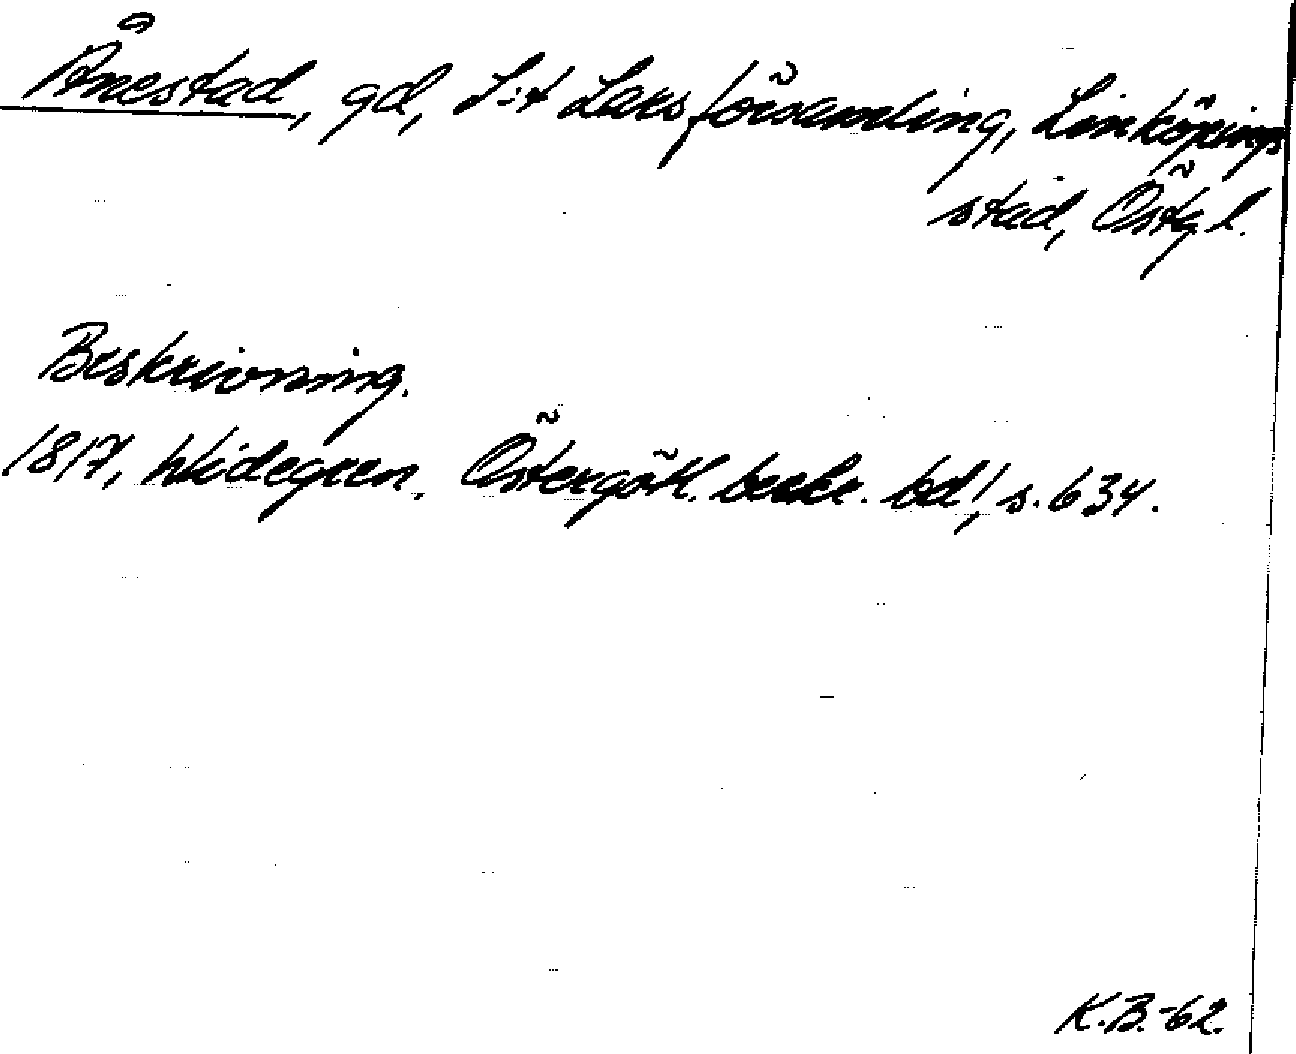 Ånestad, gd, S:t Lars församling, Linköpings
stad, Östgl.
Beskrivning.
1817, Widegren. Östergötl. beskr. bd 1, s. 634.
K.B.-62.